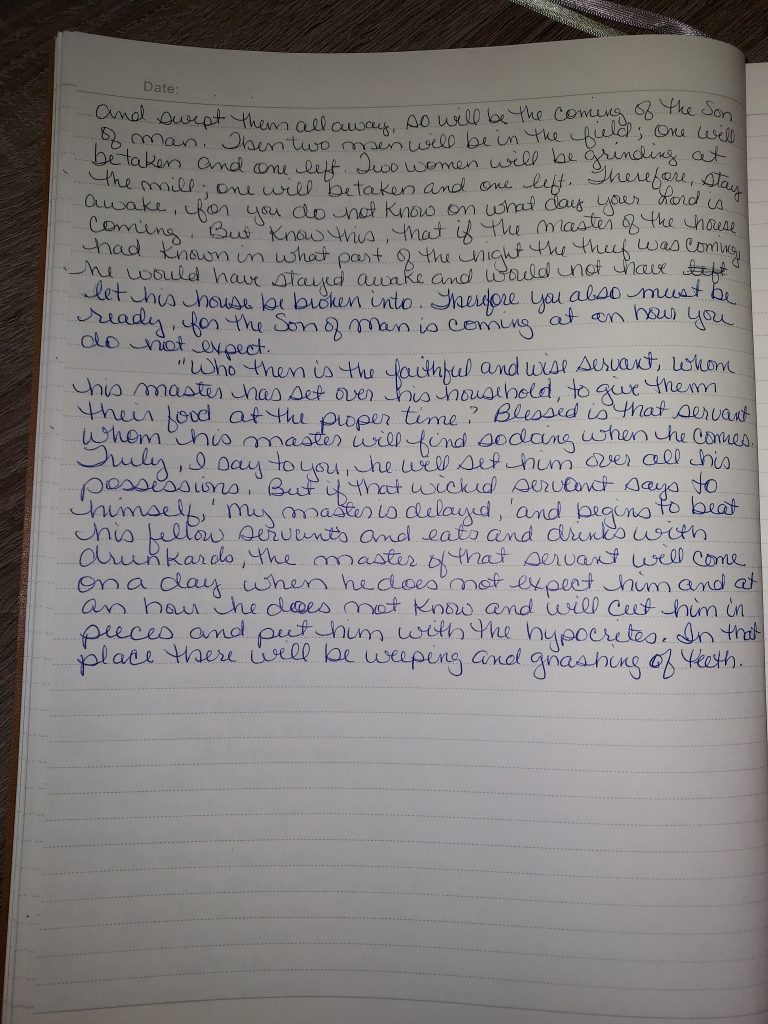 Date:
and swept them all away, so will be the coming of the Son
of man. Then two men will be in the field; one will
be taken and one left. Two women will be grinding at
the mill; one will be taken and one left. Therefore, stay
awake, for you do not know on what day your Lord is
coming. But know this, that if the master of the house
had known in what part of the night the thief was coming,
he would have stayed awake and would not have left
let his house be broken into. Therefore you also must be
ready, for the Son of Man is coming at an hour you
do not expect.
"Who then is the faithful and wise servant, whom
his master has set over his household, to give them
their food at the proper time? Blessed is that servant
whom his master will find so doing when he comes.
Truly, I say to you, he will set him over all his
possessions. But if that wicked servant says to
himself, 'my master is delayed,' and begins to beat
his fellow servants and eats and drinks with
drunkards, the master of that servant will come
on a day when he does not expect him and at
an hour he does not know and will cut him in
pieces and put him with the hypocrites. In that
place there will be weeping and gnashing of teeth.